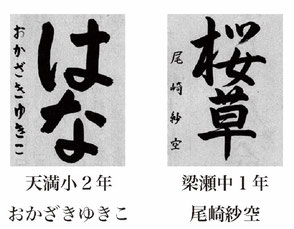 はな
おかざきゆきこ
天満小2年
おかざきゆきこ
桜草
尾崎紗空
梁瀬中1年
尾崎紗空